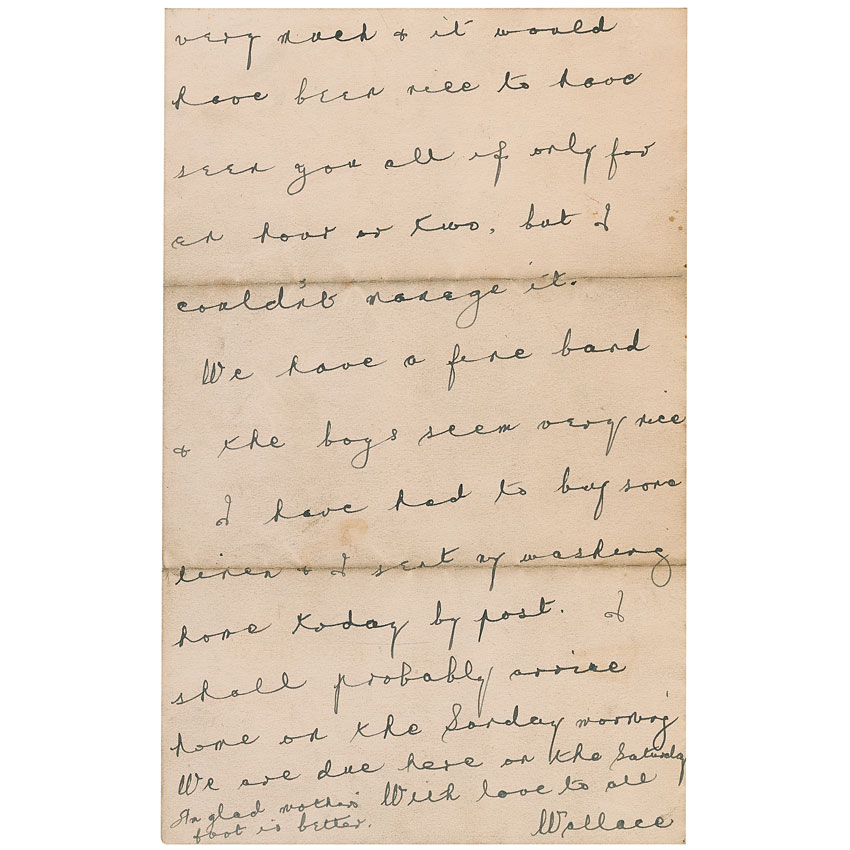 very much & it would
have been nice to have
seen you all if only for
an hour or two, but I
couldn't manage it.
We have a fine band
& the boys seem very nice
I have had to buy some
linen & I sent my washing
home today by post. I
shall probably arrive
home on the Sunday morning
We are due here on the Saturday
Im glad mothers With love to all
foot is better. Wallace